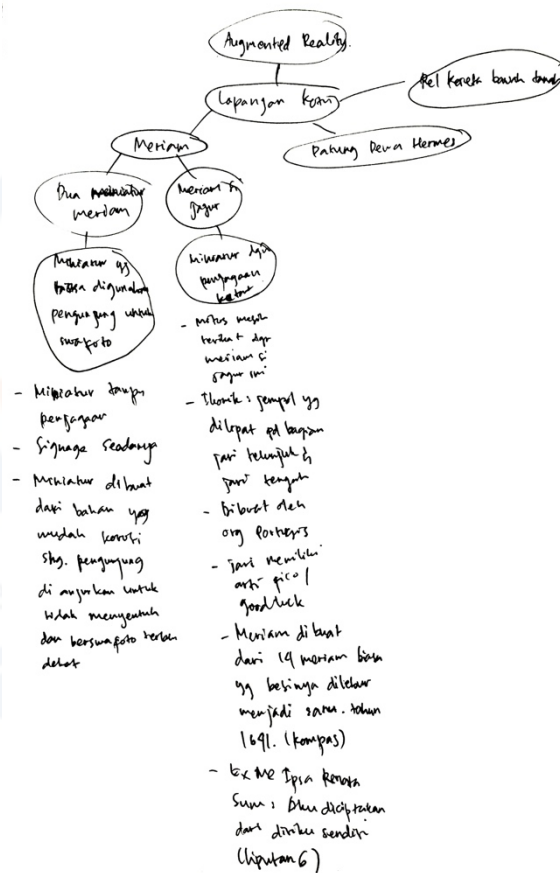 Augmented Reality
Lapangan Kota
Rel kereta bawah tanah
Patung Dewa Hermes
Meriam
Dua
meriam
Meriam si
jagur
Miniatur yg
biasa digunakan
pengunjung untuk
swafoto
Miniatur dgn
penjagaan
ketat
- Miniatur tanpa
penjagaan
- Signage seadanya
- Miniatur dibuat
dari bahan yg
mudah korosi
shg. pengunjung
dianjurkan untuk
tidak menyentuh
dan berswafoto terlalu
dekat
- Mitos masih
terikat dgn
meriam si
jagur ini
- Ikonik : jempol yg
dilipat pd bagian
jari telunjuk &
jari tengah
- Dibuat oleh
org Portugis
- jari memiliki
arti fico /
good luck
- Meriam dibuat
dari 14 meriam biasa
yg besinya dilebur
menjadi satu. tahun
1641. (kompas)
- Ex Me Ipsa Renata
Sum : Aku diciptakan
dari diriku sendiri
(liputan 6)